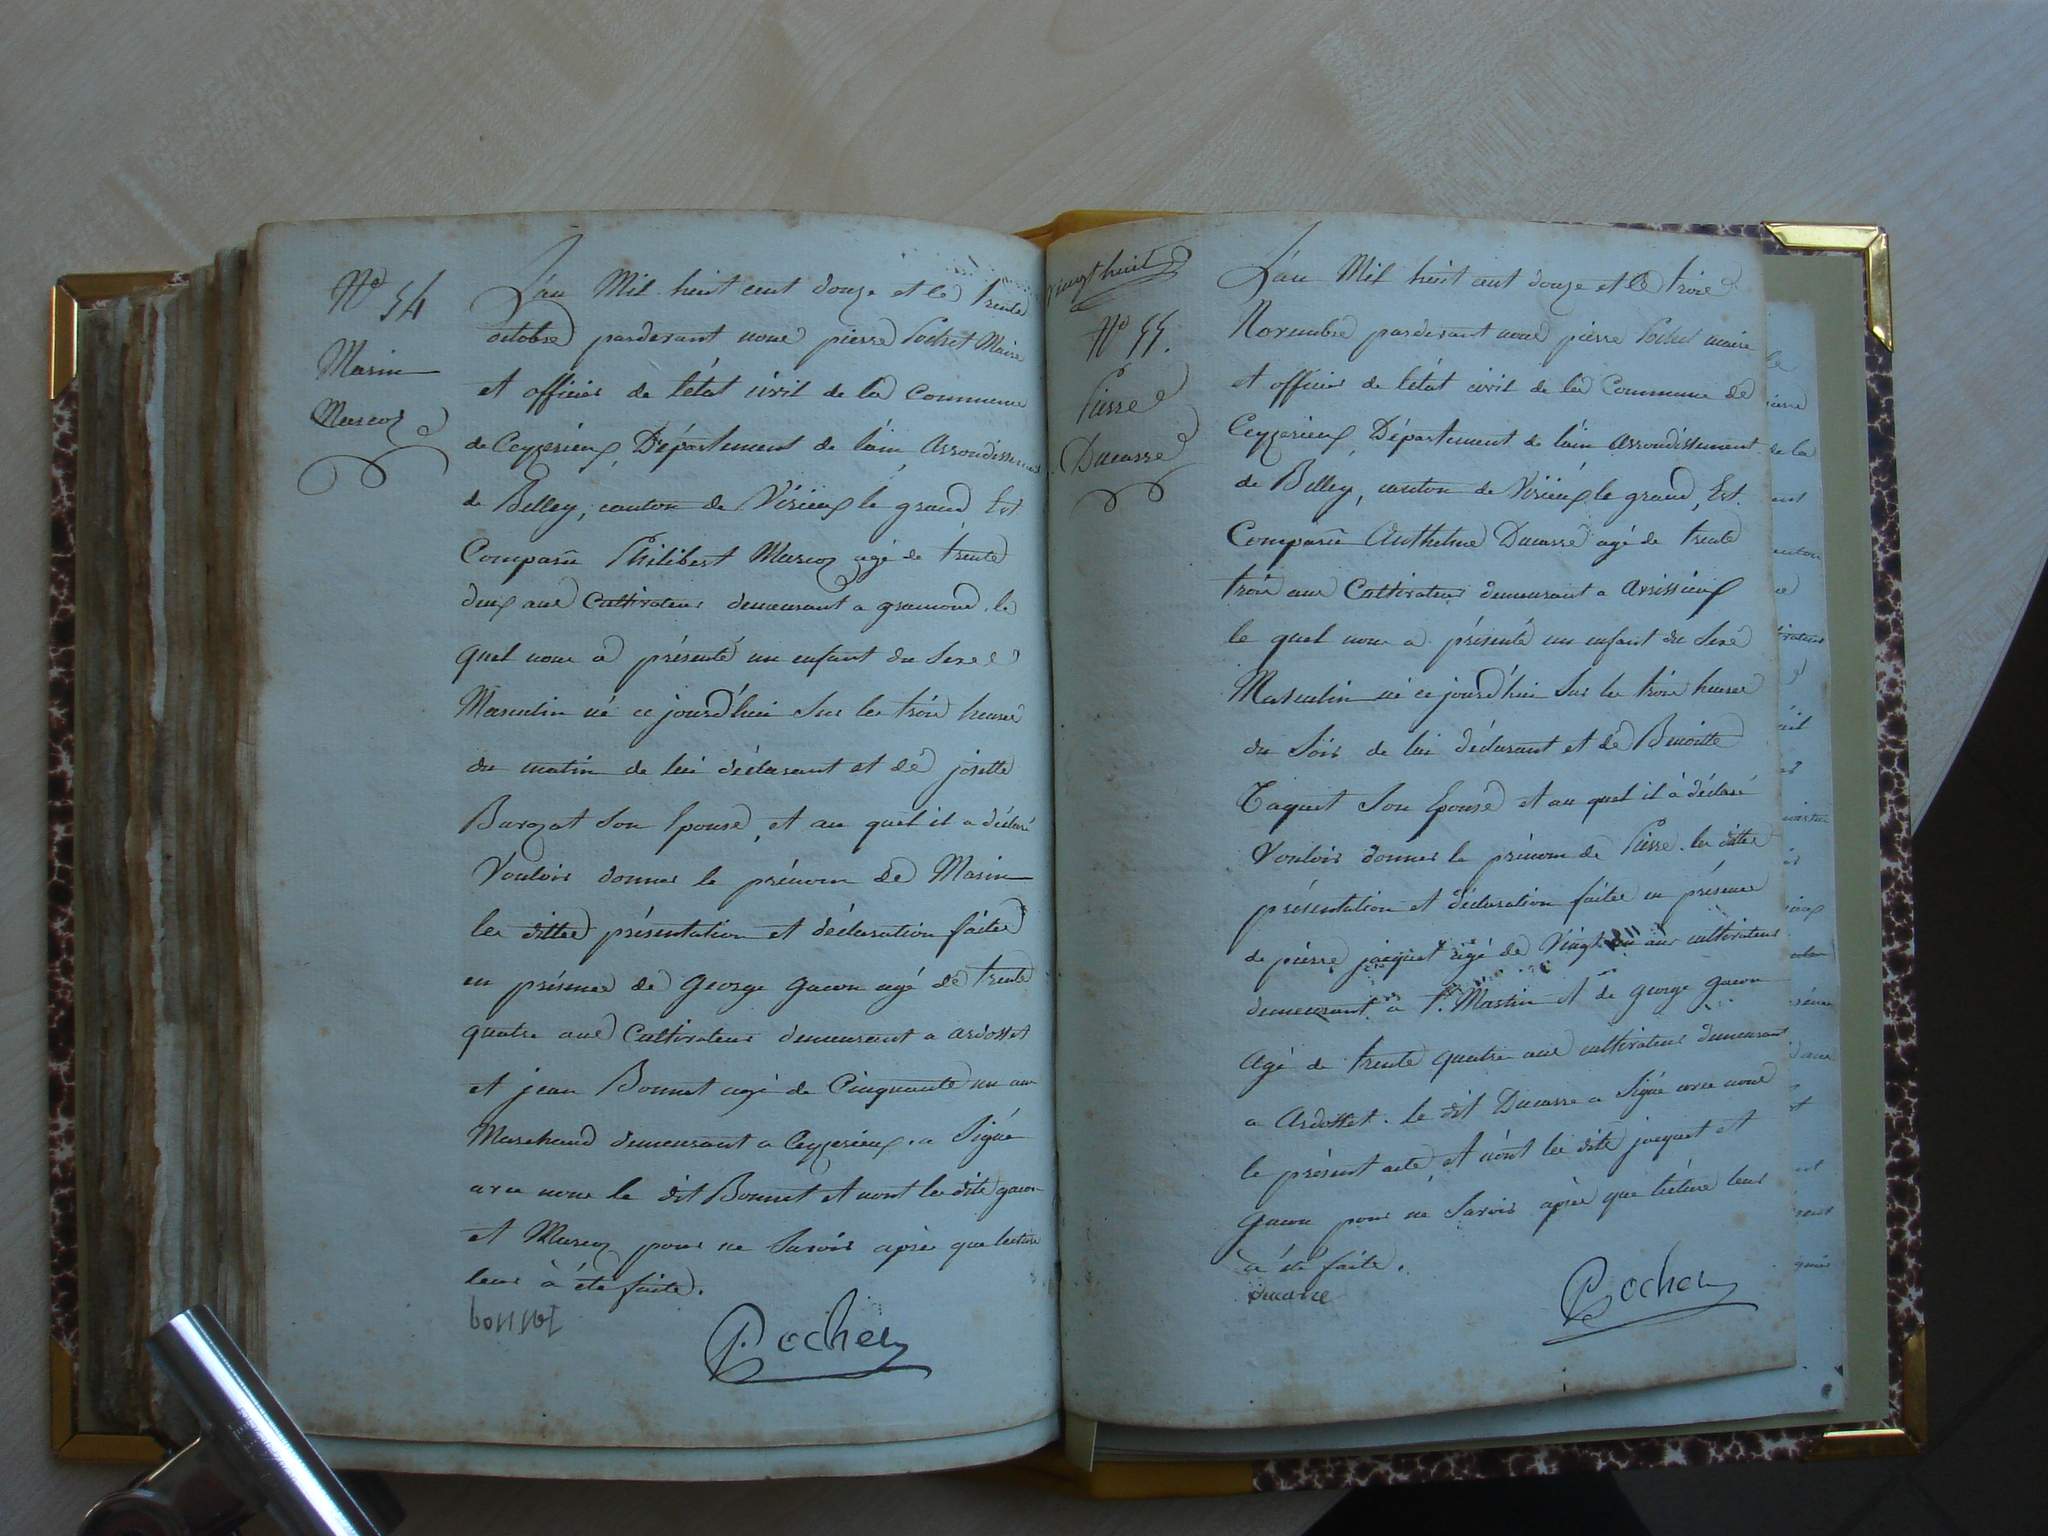 N° 54
Marin
Marcoz
L'an Mil huit cent douze et le trente
octobre pardevant nous pierre Pochet Maire
et officier de l'état civil de la Commune
de Ceyzerieux, Département de l'ain Arrondissement
de Belley, canton de Virieux le grand Est
Comparu Philibert Marcoz agé de trente
deux ans Cultivateur demeurant a gramond. le
quel nous a présenté un enfant du Sexe
Masculin né ce jourd'hui Sur les trois heures
du matin de lui déclarant et de josette
Barozat Son Epouse, et au quel il a déclaré
Vouloir donner le prénom de Marin
les dittes présentation et déclaration faites
en présence de George gacon agé de trente
quatre ans Cultivateur demeurant a ardosset
et jean Bonnet agé de Cinquante un ans
Marchand demeurant a Ceyzerieux. a Signé
avec nous le dit Bonnet et nont les dits gacon
et Marcoz pour ne Savoir après que lecture
leur à été faite.
bonnet
Pochet
Vingt huit
N° 55.
Pierre
Ducarre
L'an Mil huit cent douze et le trois
Novembre pardevant nous pierre Pochet maire
et officier de l'état civil de la Commune de
Ceyzerieux, Département de l'ain Arrondissement
de Belley, canton de Virieux le grand, Est.
Comparu Anthelme Ducarre agé de trente
trois ans Cultivateur demeurant a avrissieux
le quel nous a présenté un enfant du Sexe
Masculin né ce jourd'hui Sur les trois heures
du Soir de lui déclarant et de Benoitte
Taquet Son Epouse et au quel il à déclaré
Vouloir donner le prénom de Pierre. les dittes
présentation et déclaration faites en présence
de pierre jacquet agé de Vingt un ans cultivateur
demeurant a St. Martin et de george gacon
agé de trente quatre ans cultivateur demeurant
a Ardosset. le dit Ducarre a Signé avec nous
le présent acte, et n'ont les dits jacquet et
gacon pour ne Savoir après que lecture leur
a été faite.
ducarre
Pochet